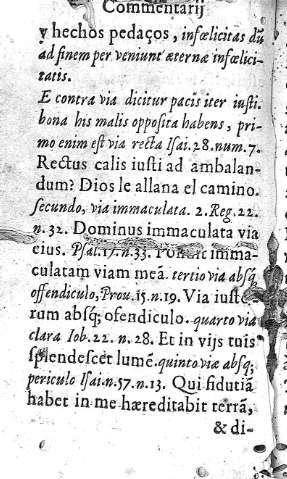 Commentarij
y hechos pedaços, infœlicitas dū
ad finem per veniunt æternæ infœlici-
tatis.
E contra via dicitur pacis iter iusti.
bona his malis opposita habens, pri-
mo enim est via recta Isai. 28. num. 7.
Rectus calis iusti ad ambalan-
dum? Dios le allana el camino.
secundo, via immaculata. 2. Reg. 22.
n. 32. Dominus immaculata via
eius. Psal. 17. n. 33. imma-
culatam viam meã. tertio via absq;
offendiculo, Prou. 15. n. 19. Via iusto-
rum absq; ofendiculo. quarto via
clara Iob. 22. n. 28. Et in vijs tuis
splendescet lumẽ. quinto viæ absq;
periculo Isai. n. 57. n. 13. Qui fidutiã
habet in me hæreditabit terrã,
& di-